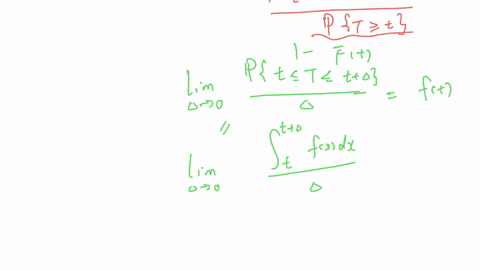 P{T ≥ t}
1 - F(t)
lim Δ→0 P{t ≤ T ≤ t+Δ} / Δ = f(t)
//
lim Δ→0 ∫ₜᵗ⁺Δ f(x)dx / Δ